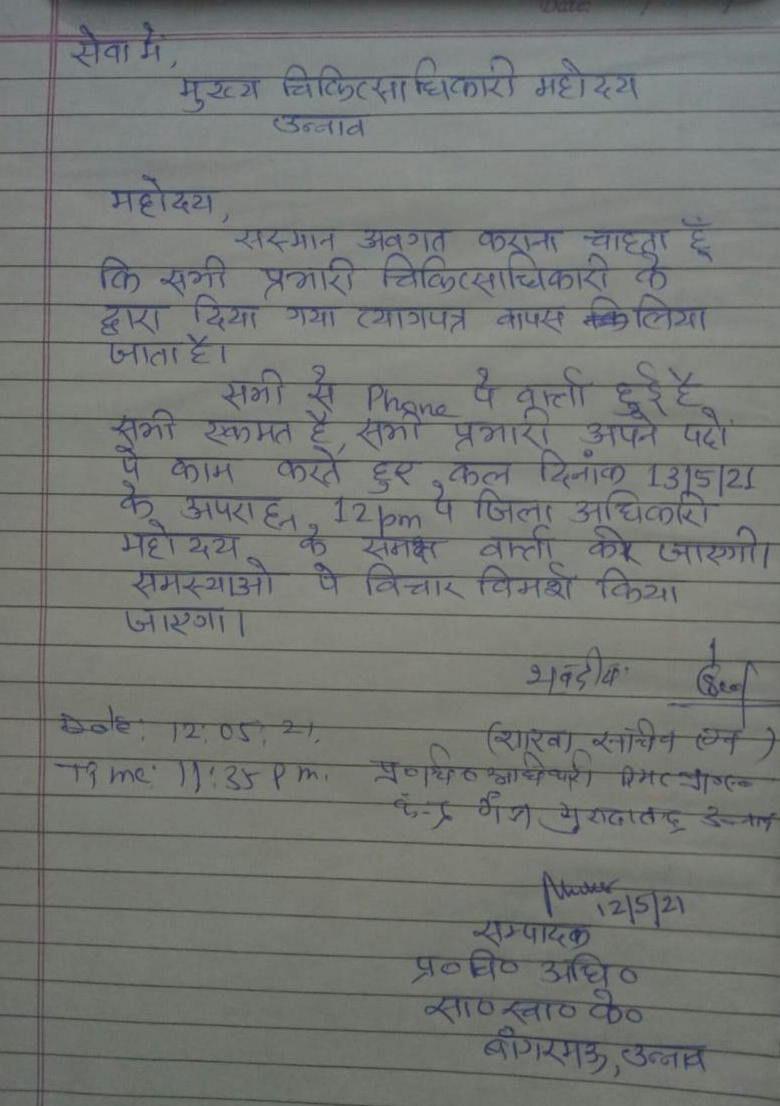 सेवा में,
मुख्य चिकित्साधिकारी महोदय
उन्नाव
महोदय,
सस्मान अवगत कराना चाहता हूँ
कि सभी प्रभारी चिकित्साधिकारी के
द्वारा दिया गया त्यागपत्र वापस लिया
जाता है।
सभी से Phone पे वार्ता हुई है,
सभी एकमत है, सभी प्रभारी अपने पदों
पे काम करते हुए कल दिनांक 13/5/21
के अपराहन 12pm पे जिला अधिकारी
महोदय के समक्ष वार्ता की जाएगी।
समस्याओ पे विचार विमर्श किया
जाएगा।
भवदीय
Date: 12:05:21.
(शाखा सचिव
Time: 11:35 Pm.
उन्नाव
12/5/21
सम्पादक
प्र० चि० अधि०
सा० स्वा० के०
बाँगरमऊ, उन्नाव